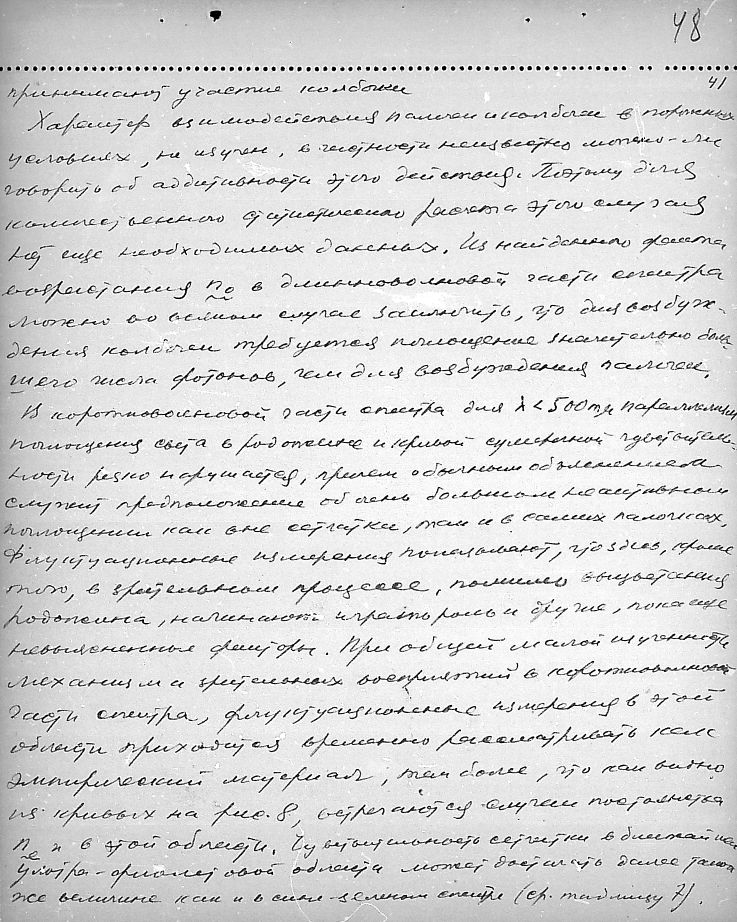 48
41
принимают участие колбочки
Характер взаимодействия палочек и колбочек в пороговых
условиях, не изучен, в частности неизвестно можно-ли
говорить об аддитивности этого действия. Поэтому для
количественного статистического расчета этого случая
нет еще необходимых данных. Из найденного факта
возрастания n₀ в длинноволновой части спектра
можно во всяком случае заключить, что для возбуж-
дения колбочек требуется поглощение значительно боль-
шего числа фотонов, чем для возбуждения палочек.
В коротковолновой части спектра для λ < 500 mμ параллелизм
поглощения света в родопсине и кривой сумеречной чувствитель-
ности резко нарушается, причем обычным объяснением
служит предположение об очень большом неактивном
поглощении как вне сетчатки, так и в самих палочках.
Флуктуационные измерения показывают, что здесь, кроме
того, в зрительном процессе, помимо выцветания
родопсина, начинают играть роль и другие, пока еще
невыясненные факторы. При общей малой изученности
механизма зрительных восприятий в коротковолновой
части спектра, флуктуационные измерения в этой
области приходится временно рассматривать как
эмпирический материал, тем более, что как видно
из кривых на рис. 8, встречаются случаи постоянства
n₀ и в этой области. Чувствительность сетчатки в ближайшей
ультра-фиолетовой области может достигать далее такой
же величине как и в сине-зеленом спектре (ср. таблицу 7).